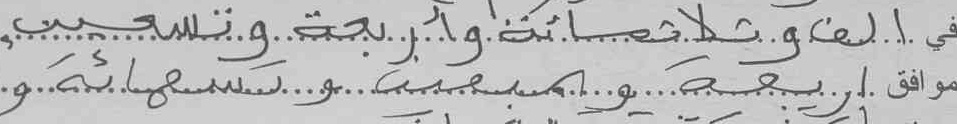 في الف وثلاثمائة وأربعة وتسعين
موافق اربعة وسبعين وتسعمائة و